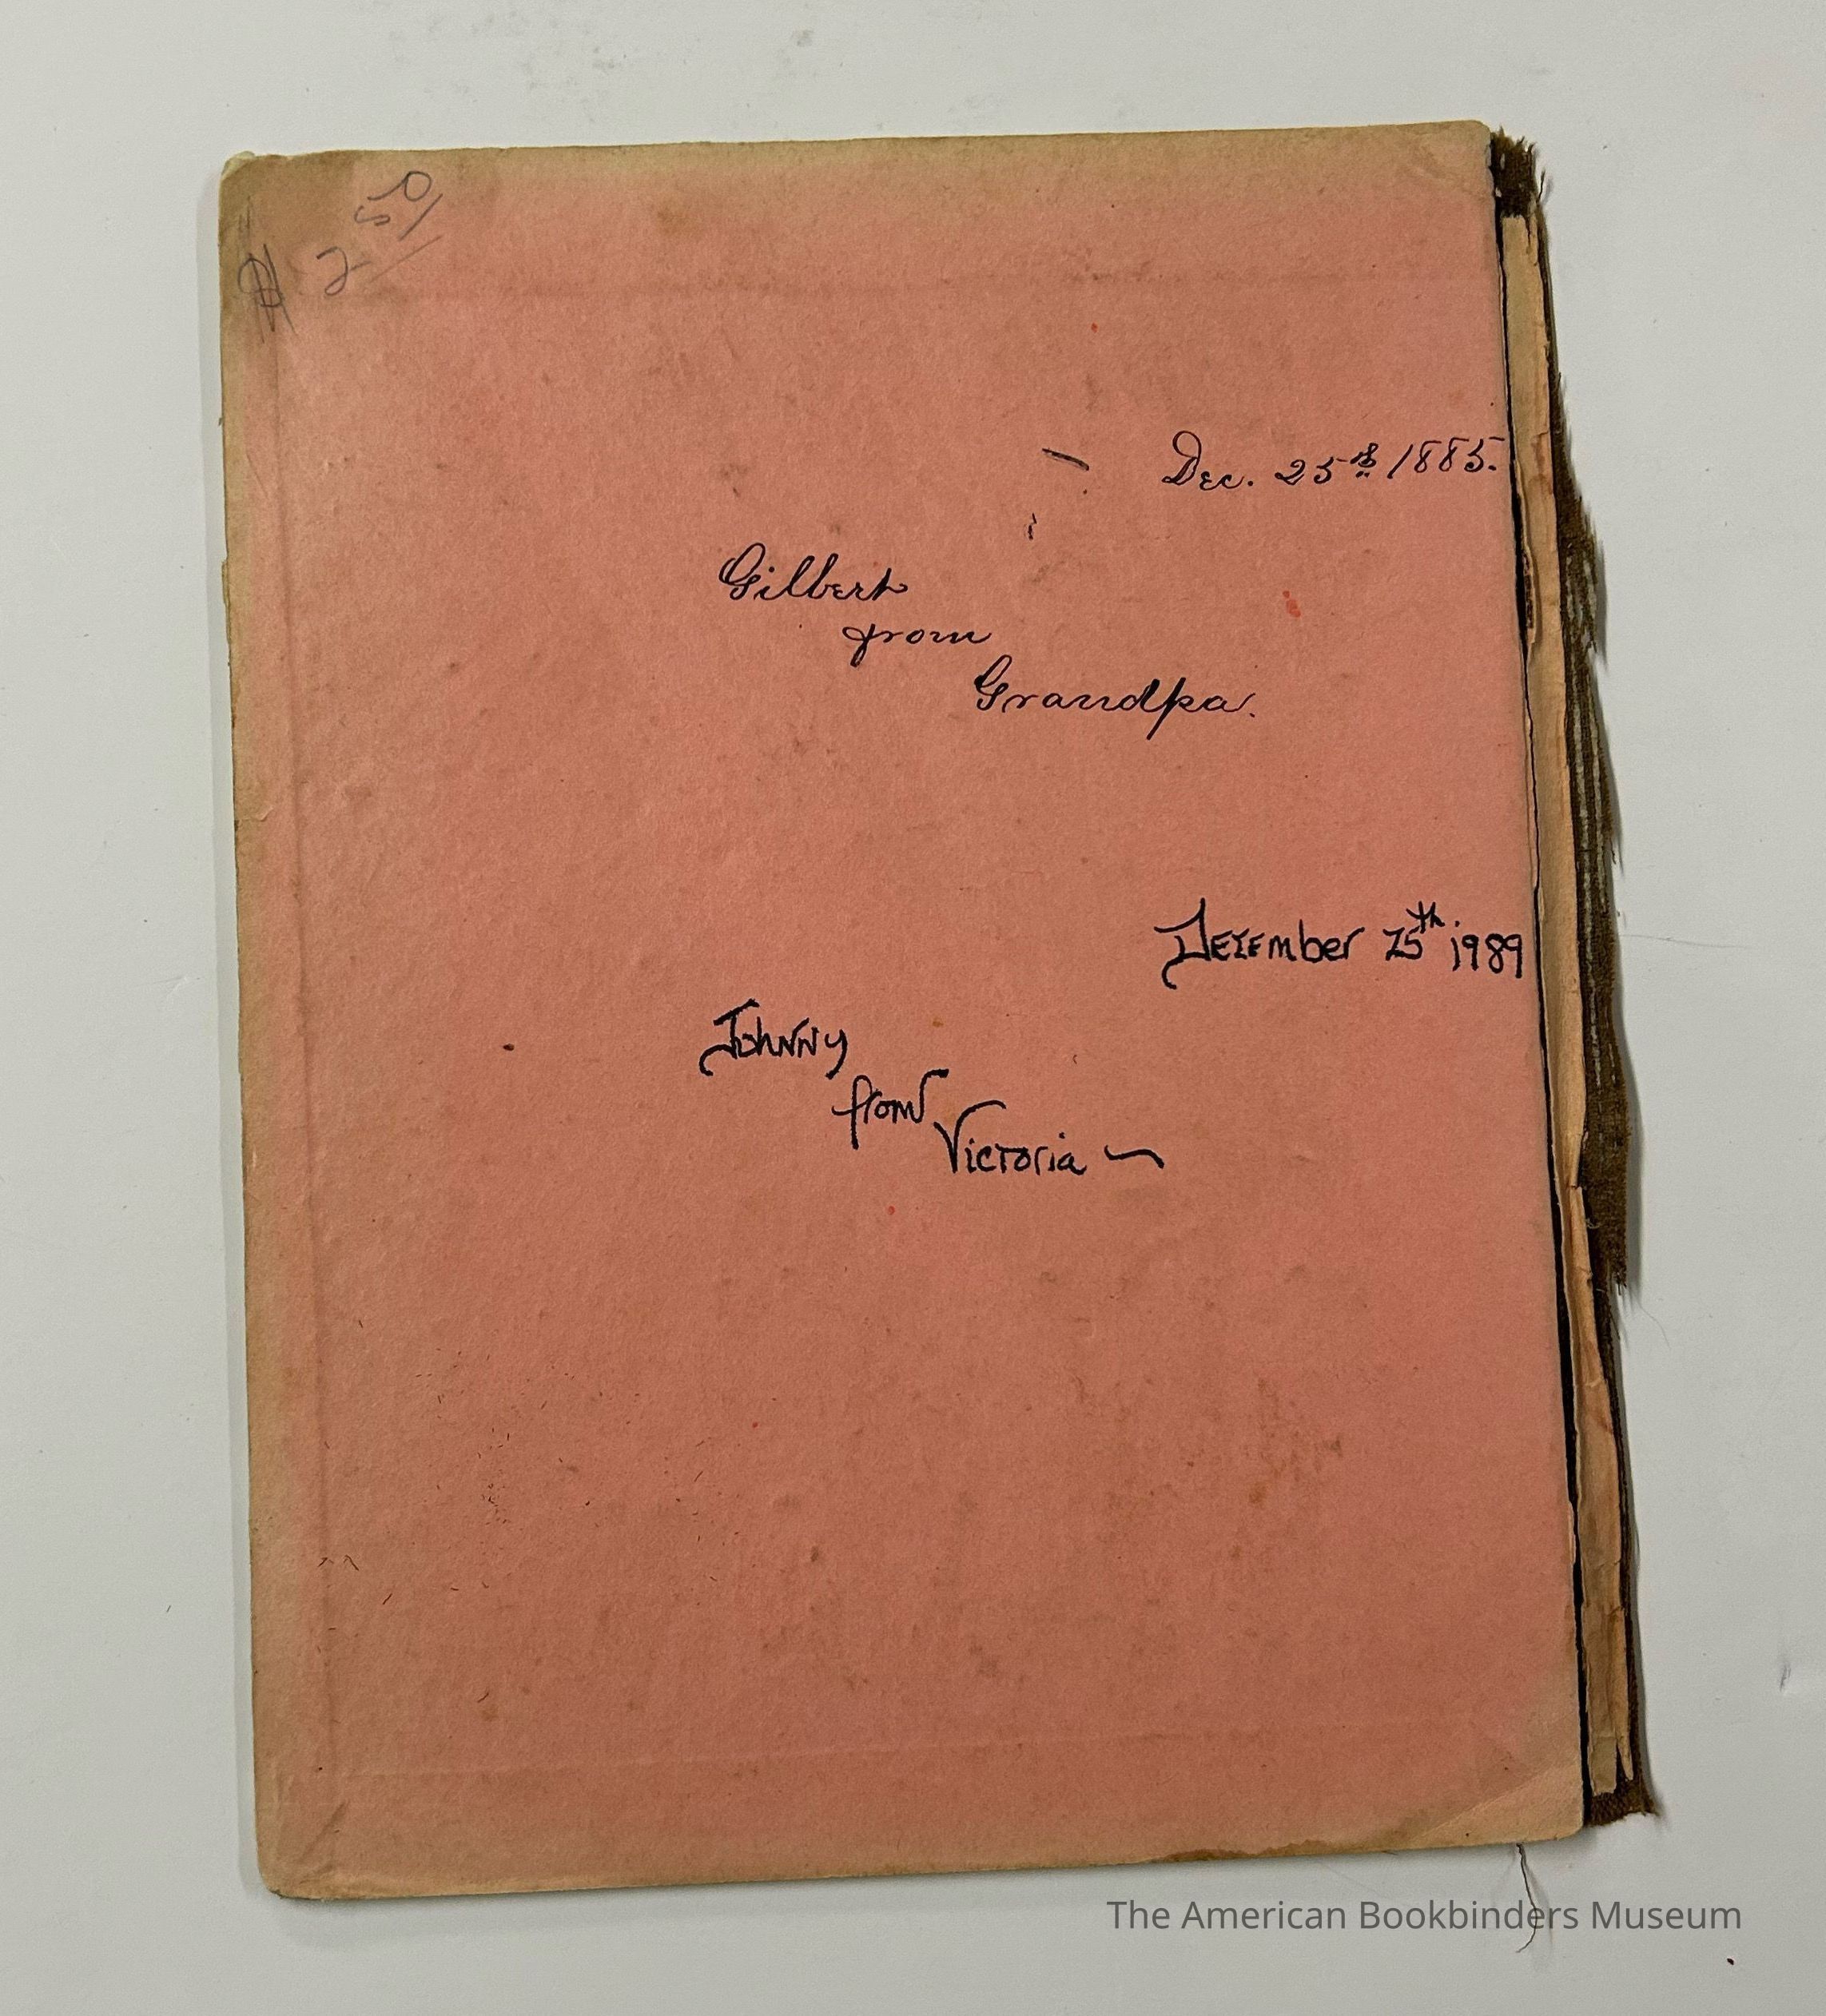 $ 2 50/
Dec. 25th 1885.
Gilbert
from
Grandpa.
December 25th 1989
Johnny
from
Victoria ~
The American Bookbinders Museum